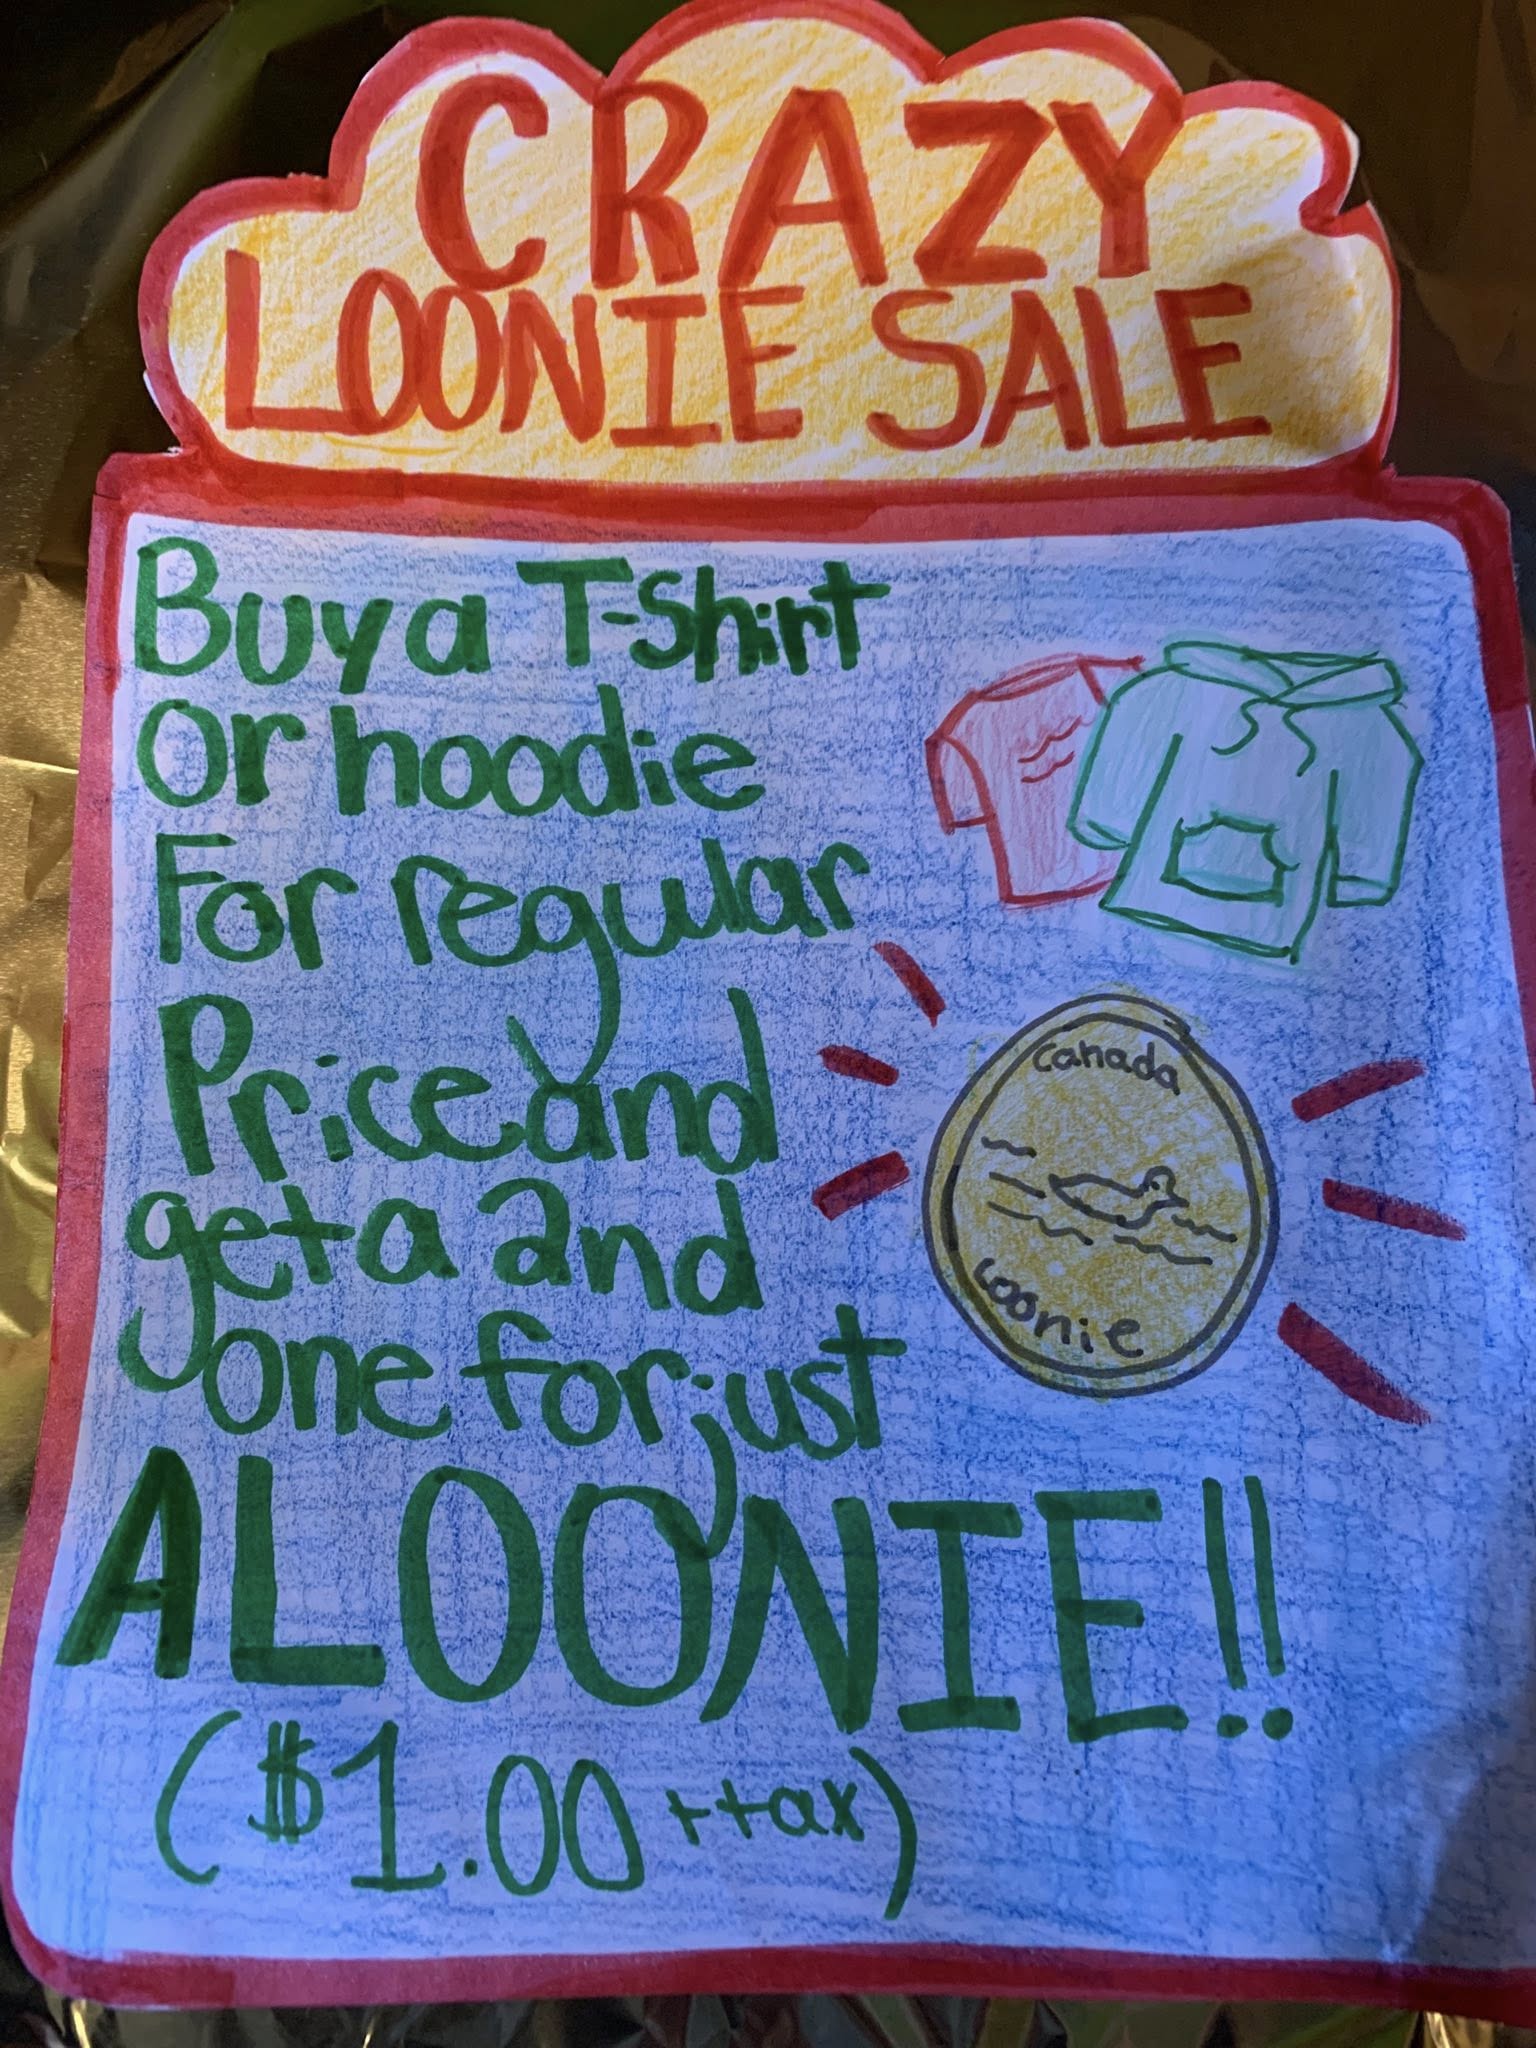 CRAZY
LOONIE SALE
Buy a T-Shirt
Or hoodie
For regular
Price and
get a 2nd
one for just
A LOONIE!!
($1.00 + tax)
Canada
Loonie